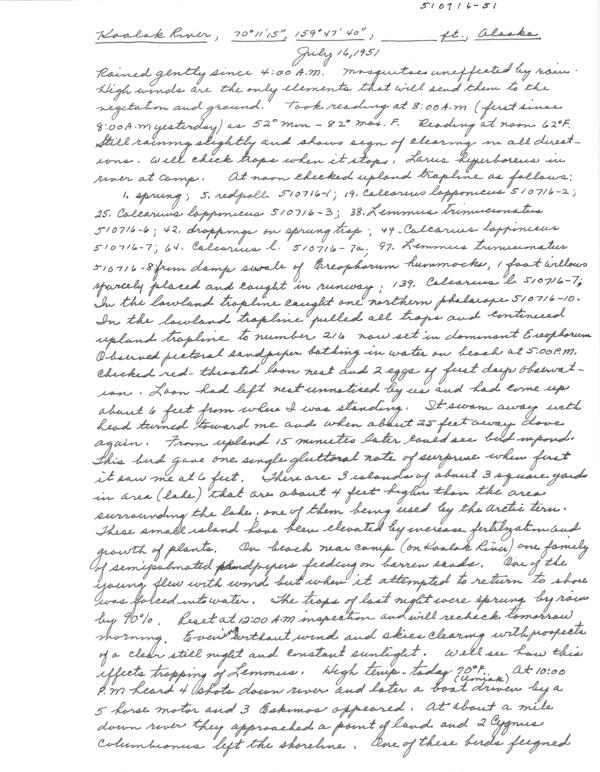 510716-51
Kaolak River, 70°11'15", 159°47'40", ft., Alaska
July 16, 1951
Rained gently since 4:00 A.M. Mosquitoes uneffected by rain.
High winds are the only elements that will send them to the
vegetation and ground. Took reading at 8:00 A.M (first since
8:00 A.M yesterday) as 52° min - 82° max. F. Reading at noon 62°F.
Still raining slightly and shows sign of clearing in all direct-
ions. Will check traps when it stops. Larus hyperboreus in
river at camp. At noon checked upland trapline as follows:
1. sprung; 5. redpoll 510716-1; 19. Calcarius lapponicus 510716-2;
25. Calcarius lapponicus 510716-3; 38. Lemmus trimucronatus
510716-6; 42. droppings on sprung trap; 49. Calcarius lapponicus
510716-7; 64. Calcarius l. 510716-7a; 97. Lemmus trimucronatus
510716-8 from damp swale of Ereophorum hummocks, 1 foot willows
sparcely placed and caught in runway; 139. Calcarius l. 510716-7;
In the lowland trapline caught one northern phalarope 510716-10.
In the lowland trapline pulled all traps and continued
upland trapline to number 216 now set in dominant Ereophorum
Observed pectoral sandpiper bathing in water on beach at 5:00 P.M.
Checked red-throated loon nest and 2 eggs of first days observat-
ion. Loon had left nest unnoticed by us and had come up
about 6 feet from where I was standing. It swam away with
head turned toward me and when about 25 feet away dove
again. From upland 15 minutes later could see bird in pond.
This bird gave one single gluttoral note of surprise when first
it saw me at 6 feet. There are 3 islands of about 3 square yards
in area (lake) that are about 4 feet higher than the area
surrounding the lake; one of them being used by the arctic tern.
These small island have been elevated by increase fertilization and
growth of plants. On beach near camp (on Kaolak River) one family
of semipalmated sandpipers feeding on barren sands. One of the
young flew with wind but when it attempted to return to shore
was forced into water. The traps of last night were sprung by rain
by 90%. Reset at 12:00 A.M inspection and will recheck tomorrow
morning. Evening without wind and skies clearing with prospects
of a clear still night and constant sunlight. Will see how this
effects trapping of Lemmus. High temp. today 70°F. At 10:00
P.M heard 4 shots down river and later a boat (Umiak) driven by a
5 horse motor and 3 Eskimos appeared. At about a mile
down river they approached a point of land and 2 Cygnus
columbianus left the shoreline. One of these birds feigned